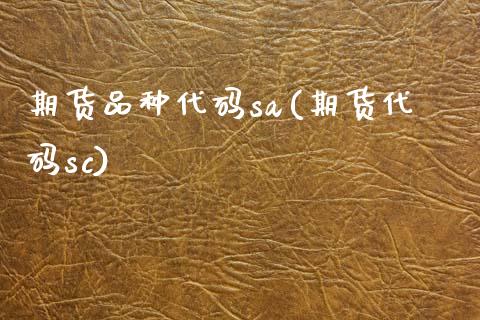 期货品种代码sa(期货代
码sc)